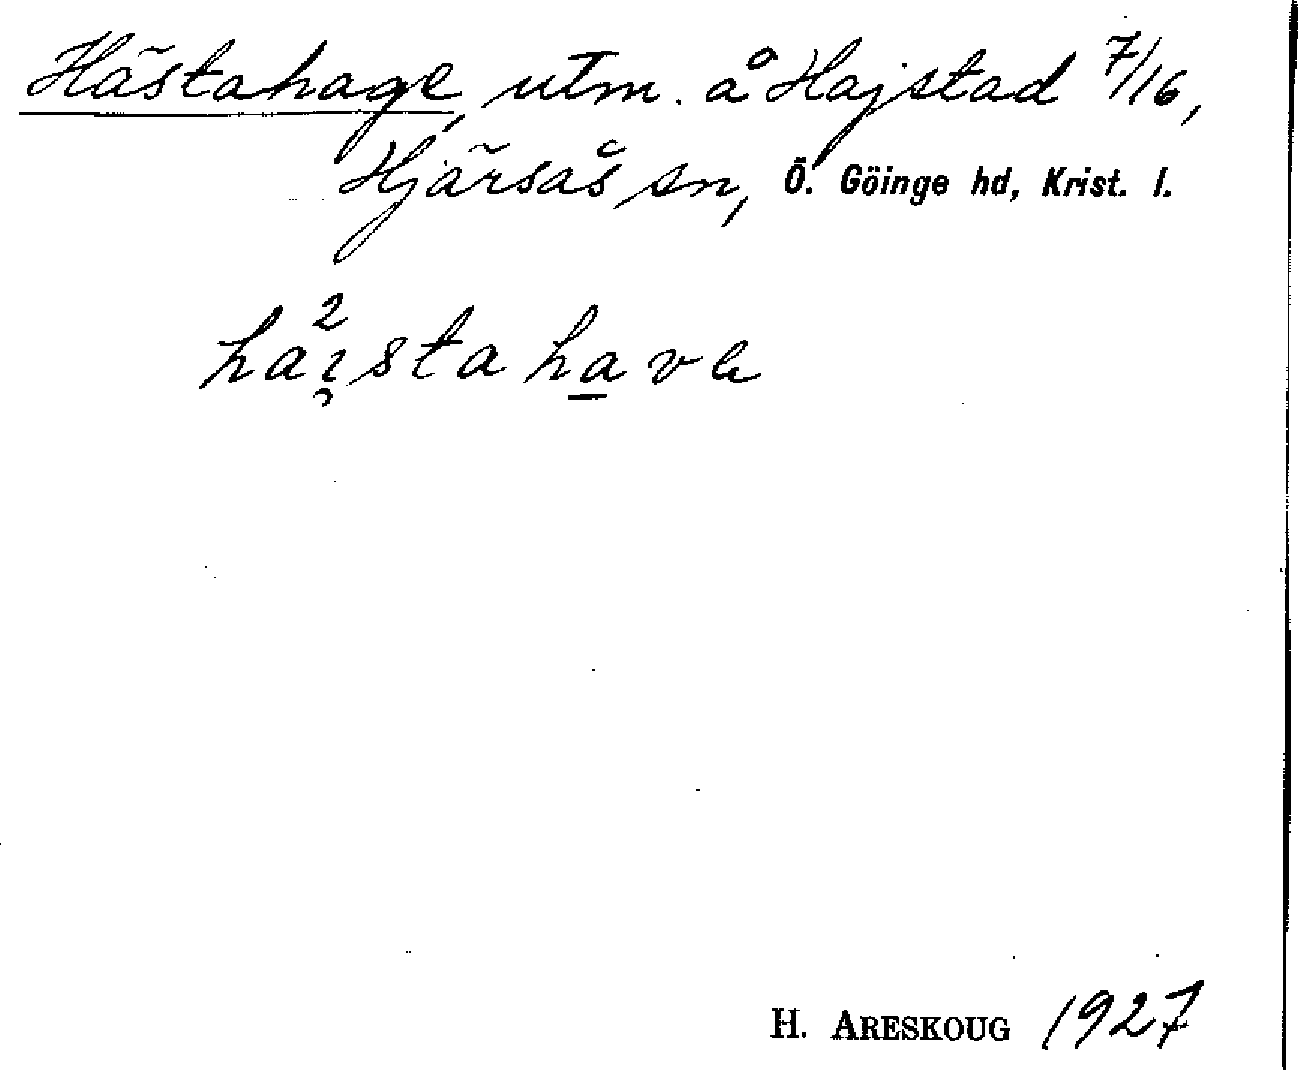 Hästahage, utm. å Hajstad 7/16,
Hjärsås sn, Ö. Göinge hd, Krist. l.
H. ARESKOUG 1927